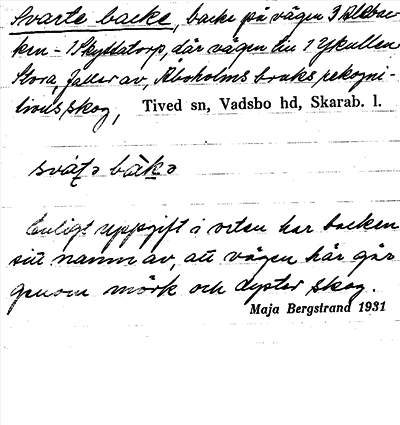 Svarte backe, backe på vägen 3 Älebac-
ken - 1 Skyttatorp, där vägen till 1 Ykullen
Stora, faller av, Åboholms bruks rekogni-
tionsskog, Tived sn, Vadsbo hd, Skarab. l.
svát̠ə bàk̠ə
Enligt uppgift i orten har backen
sitt namn av, att vägen här går
genom mörk och dyster skog.
Maja Bergstrand 1931